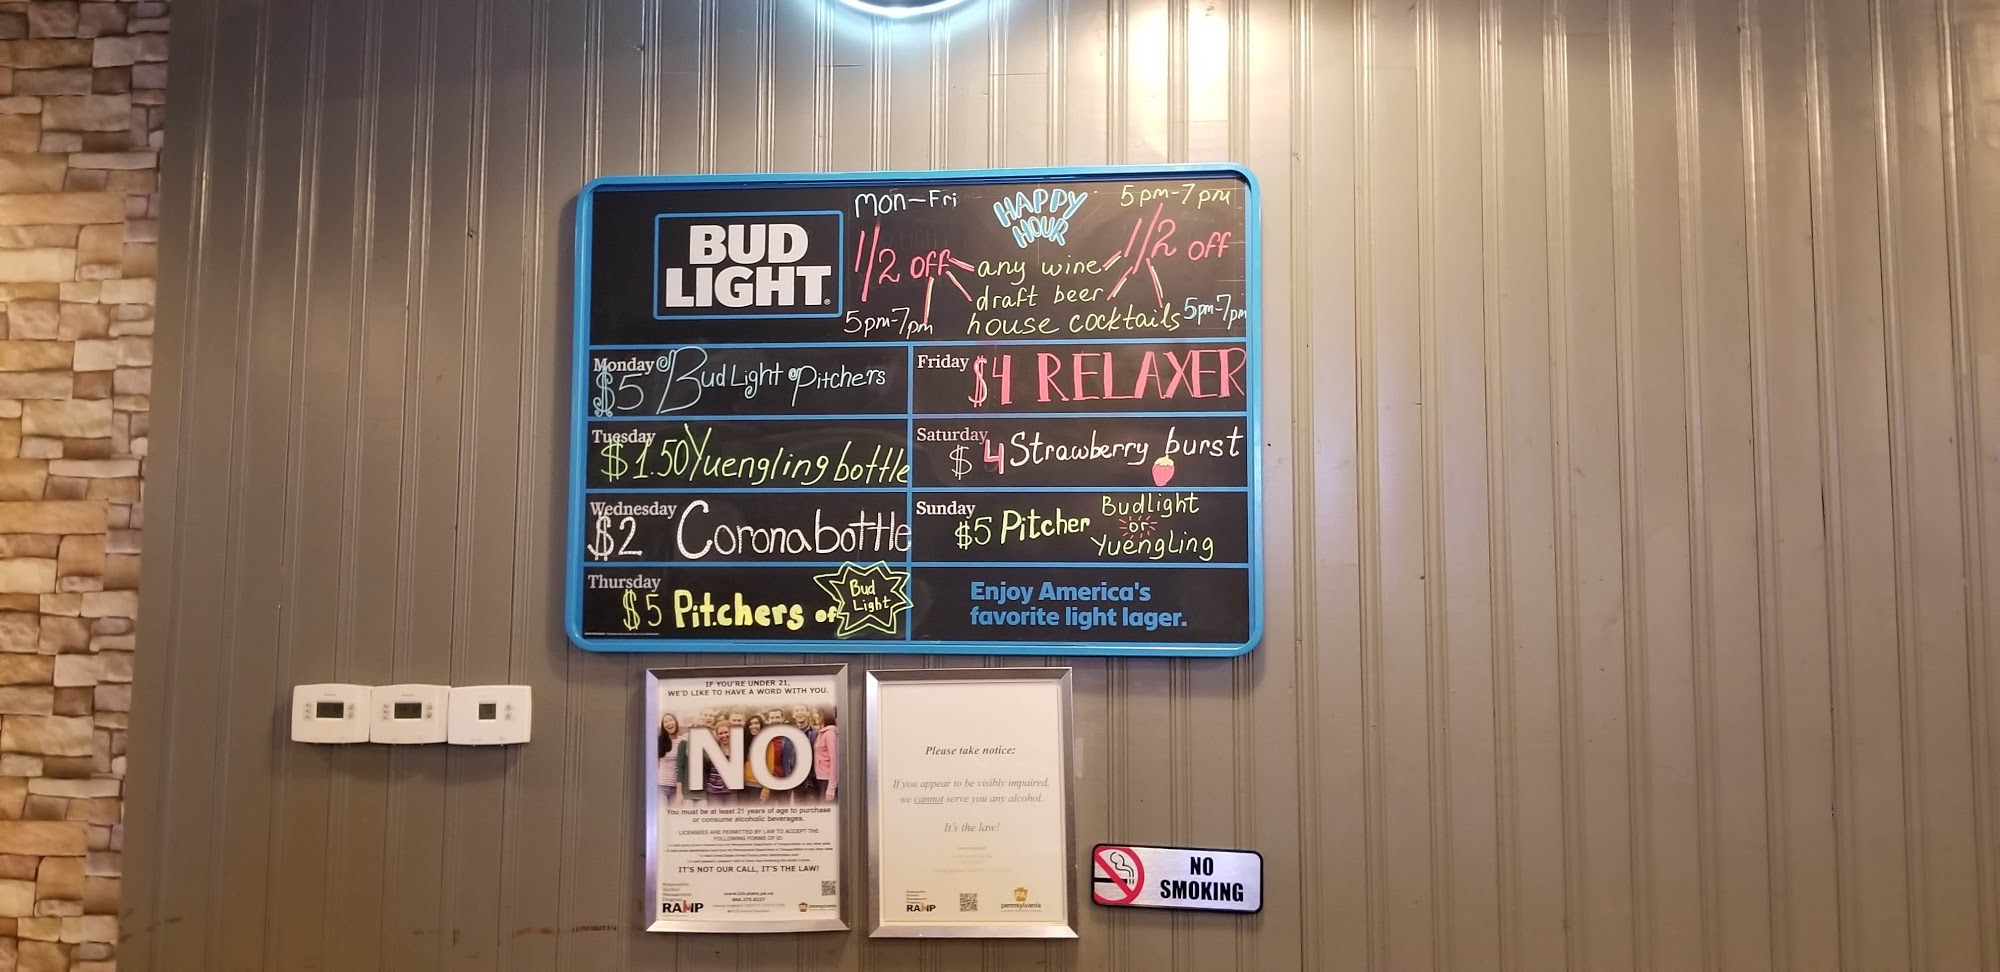 BUD
LIGHT
Mon-Fri
HAPPY
HOUR
5pm-7pm
1/2 off
any wine
1/2 off
draft beer
5pm-7pm
house cocktails
5pm-7pm
Monday
$5 Bud Light Pitchers
Friday
$4 RELAXER
Tuesday
$1.50 Yuengling bottle
Saturday
$4 Strawberry burst
Wednesday
$2 Corona bottle
Sunday
$5 Pitcher
Budlight
or
Yuengling
Thursday
$5 Pitchers of
Bud
Light
Enjoy America's
favorite light lager.
IF YOU'RE UNDER 21,
WE'D LIKE TO HAVE A WORD WITH YOU.
NO
You must be at least 21 years of age to purchase
or consume alcoholic beverages.
LICENSEES ARE PERMITTED BY LAW TO ACCEPT THE
FOLLOWING FORMS OF ID:
IT'S NOT OUR CALL, IT'S THE LAW!
RAMP
pennsylvania
Please take notice:
If you appear to be visibly impaired,
we cannot serve you any alcohol.
It's the law!
RAMP
pennsylvania
NO
SMOKING